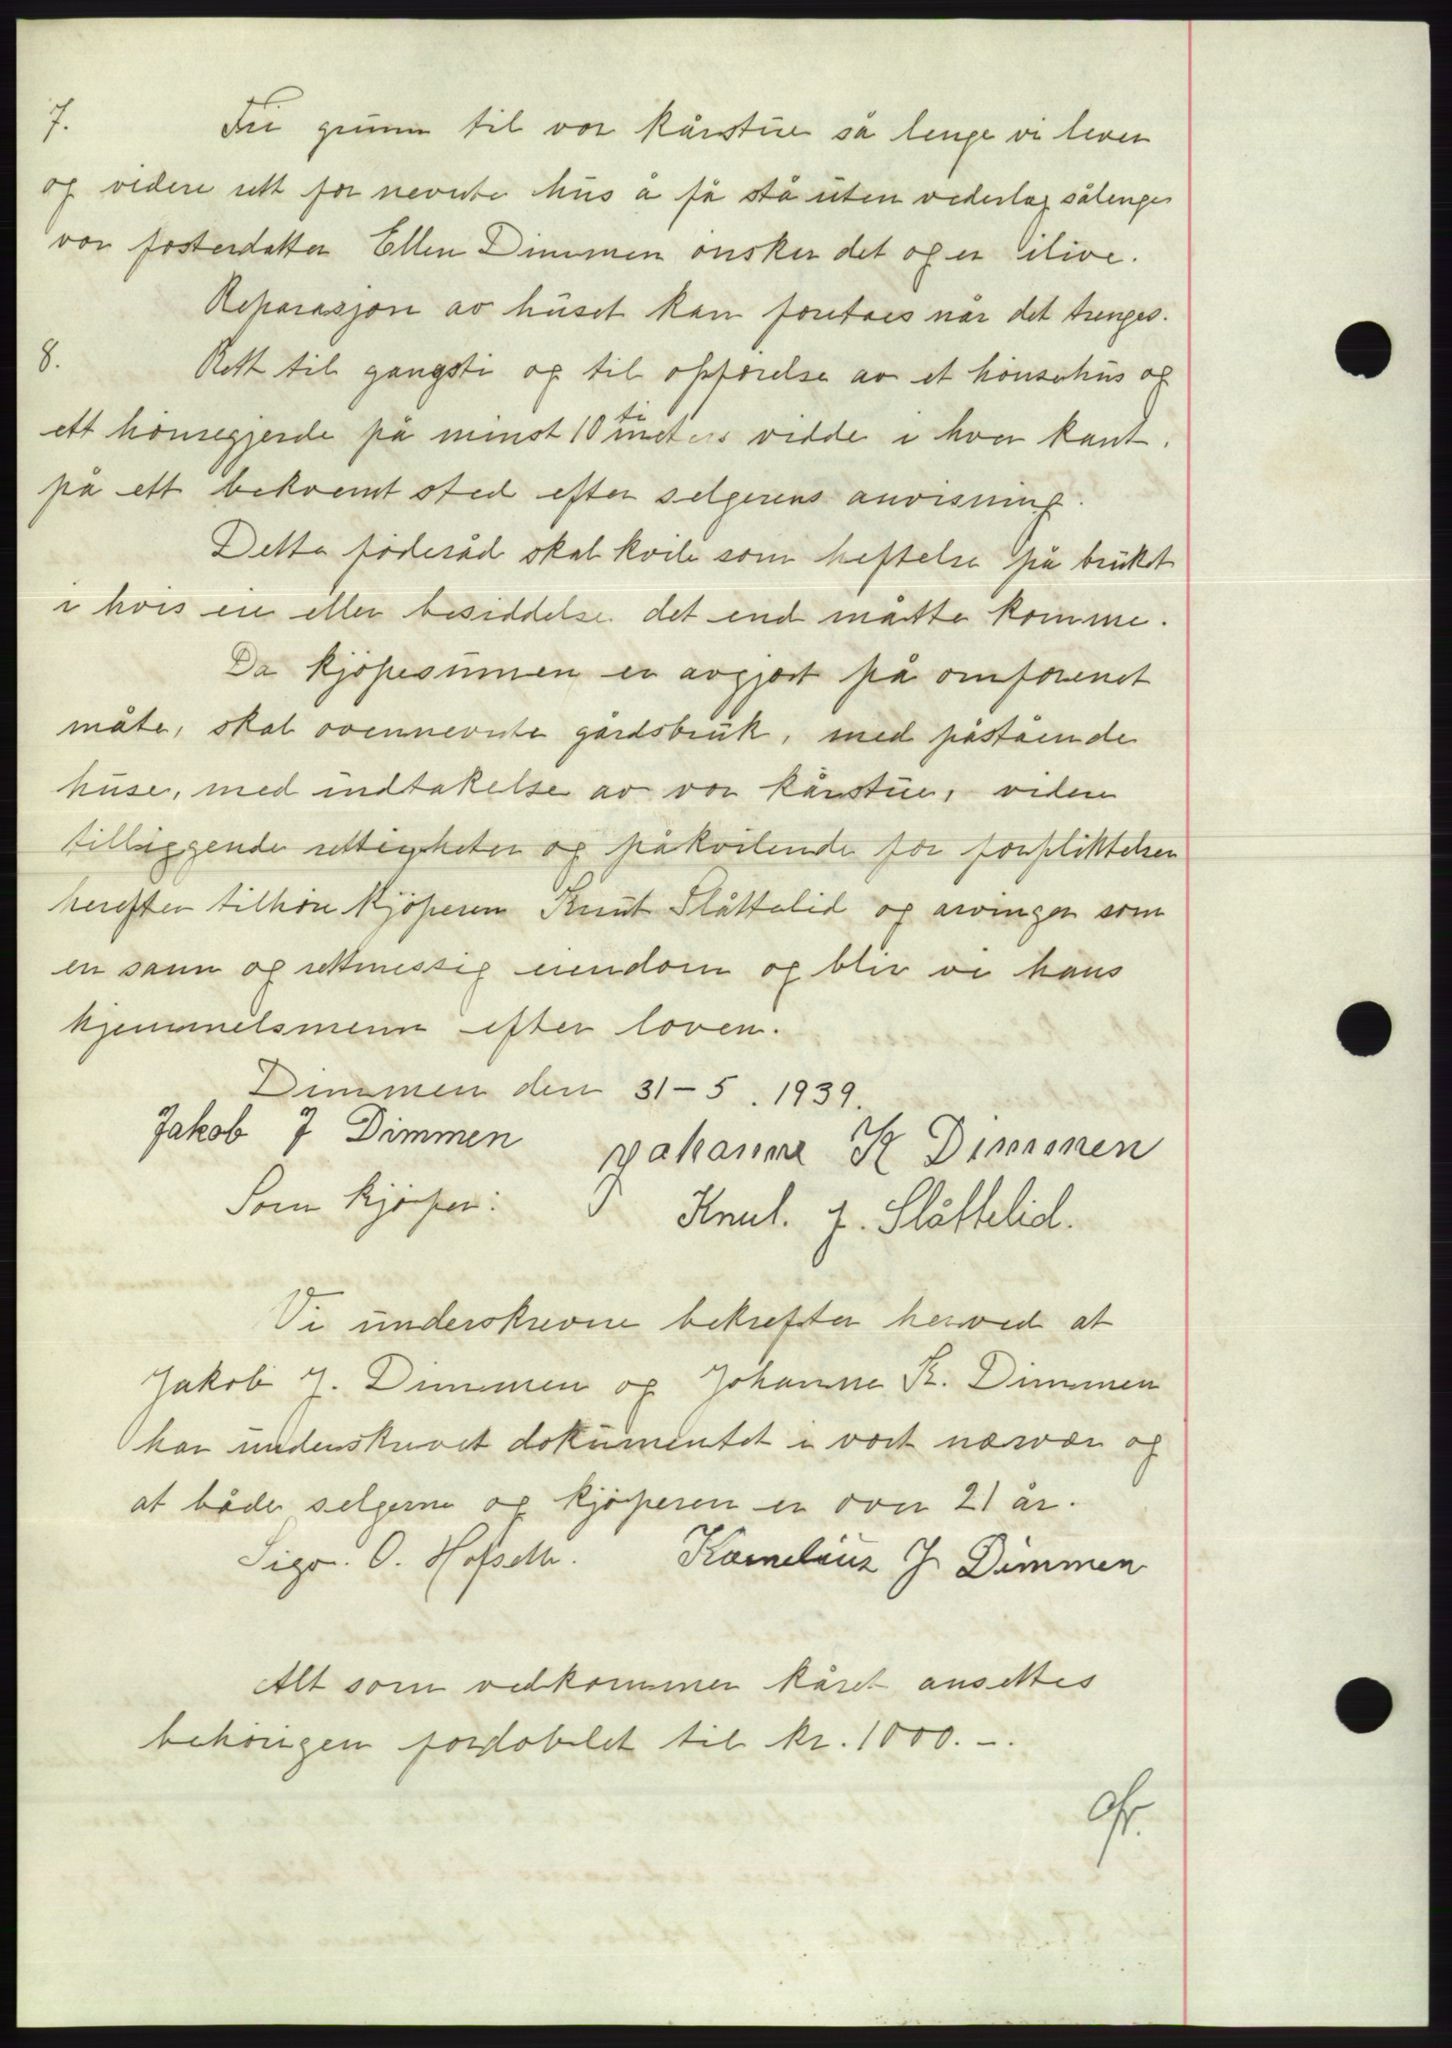 7. Fri grunn til vor kårstue så lenge vi lever
og videre rett for nevnte hus å få stå uten vederlag sålenge
vor fosterdatter Ellen Dimmen ønsker det og er ilive.
Reparasjon av huset kan foretaes når det trenges.
8. Rett til gangsti og til opførelse av et hønsehus og
ett hønsegjerde på minst 10 ti meters vidde i hver kant,
på ett bekvemt sted efter selgerens anvisning.
Dette føderåd skal kvile som heftelse på bruket
i hvis eie eller besiddelse det end måtte komme.
Da kjøpesummen er avgjort på omforenet
måte, skal ovennevnte gårdsbruk, med påstående
huse, med undtakelse av vor kårstue, videre
tilliggende rettigheter og påkvilende for forpliktelser
herefter tilhøre kjøperen Knut Slåttelid og arvinger som
en sann og rettmessig eiendom og blir vi hans
hjemmelsmenn efter loven.
Dimmen den 31-5. 1939.
Jakob J Dimmen Johanne K Dimmen
Som kjøper: Knut. J. Slåttelid.
Vi underskrevne bekrefter herved at
Jakob J. Dimmen og Johanne K. Dimmen
har underskrevet dokumentet i vort nærvær og
at både selgerne og kjøperen er over 21 år.
Sigv. O. Hofseth. Kornelius J Dimmen
Alt som vedkommer kåret ansettes
behørigen fordoblet til kr. 1000.-.